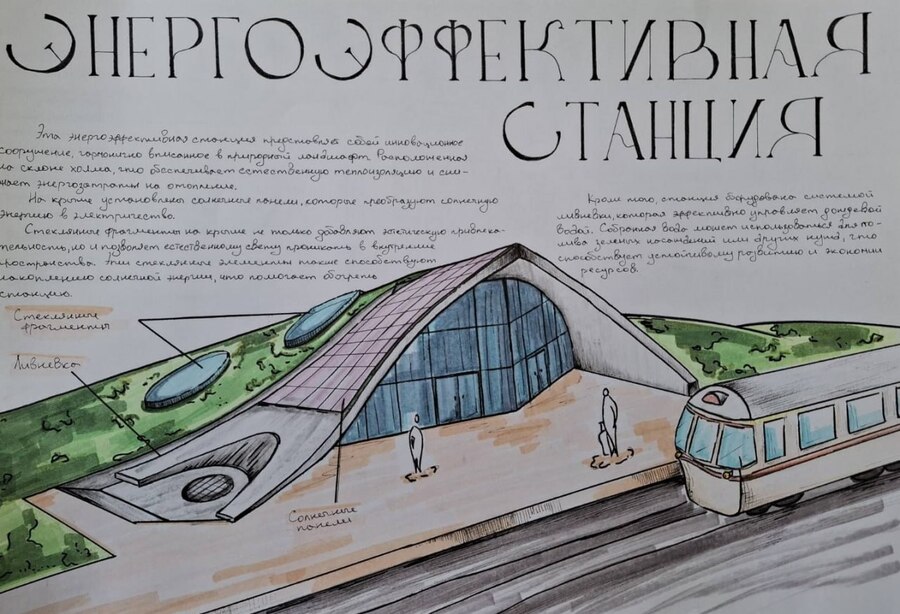 ЭНЕРГОЭФФЕКТИВНАЯ
СТАНЦИЯ
Эта энергоэффективная станция представляет собой инновационное
сооружение, гармонично вписанное в природный ландшафт. Расположенная
на склоне холма, что обеспечивает естественную теплоизоляцию и сни-
жает энергозатраты на отопление.
На крыше установлены солнечные панели, которые преобразуют солнечную
энергию в электричество.
Стеклянные фрагменты на крыше не только добавляют эстетическую привлека-
тельность, но и позволяет естественному свету проникать в внутренние
пространства. Эти стеклянные элементы также способствуют
накоплению солнечной энергии, что помогает обогреть
станцию.
Кроме того, станция оборудована системой
ливнёвки, которая эффективно управляет дождевой
водой. Собранная вода может использоваться для по-
лива зеленых насаждений или других нужд, что
способствует устойчивому развитию и экономии
ресурсов.
Стеклянные
фрагменты
Ливневка
Солнечные
панели